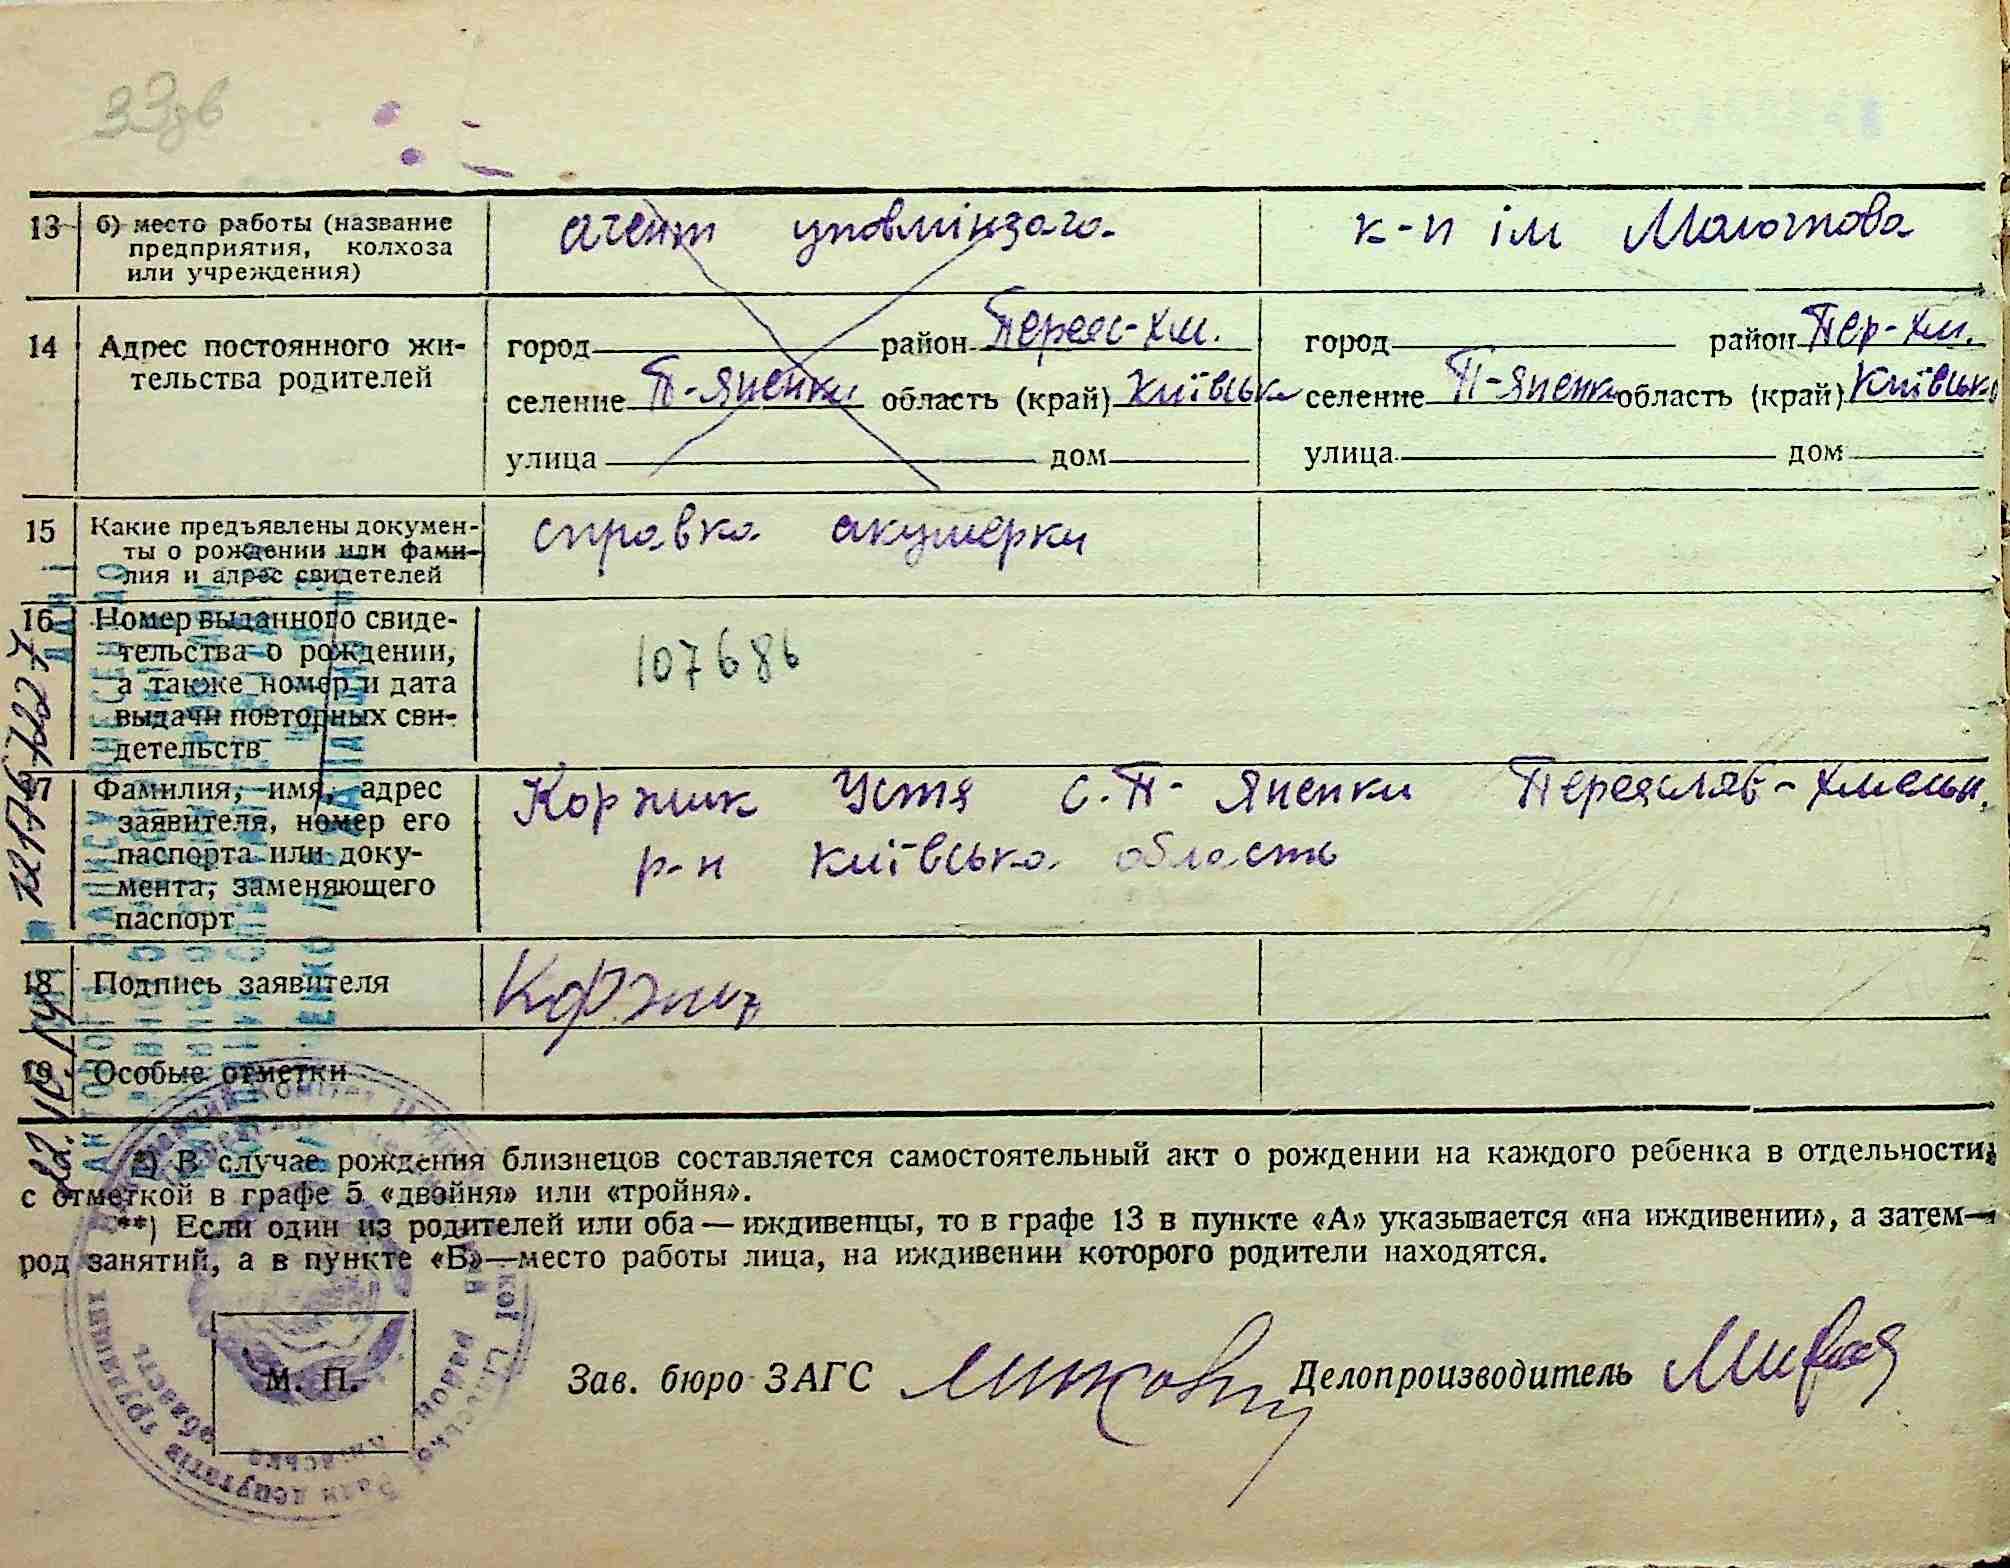 33зв
13 б) место работы (название предприятия, колхоза или учреждения) агент уповмінзага к-п ім Молотова
14 Адрес постоянного жи-
тельства родителей
город район Переяс-Хм. город район Пер-Хм.
селение П-Яненки область (край) Київська селение П-Яненки область (край) Київська
улица дом улица дом
15 Какие предъявлены докумен-
ты о рождении или фами-
лия и адрес свидетелей
справка акушерки
16 Номер выданного свиде-
тельства о рождении,
а также номер и дата
выдачи повторных сви-
детельств
107686
17 Фамилия, имя, адрес
заявителя, номер его
паспорта или доку-
мента, заменяющего
паспорт
Коржик Устя с. П-Яненки Переяслав-Хмельн.
р-н Київська область
18 Подпись заявителя Коржик
19 Особые отметки
*) В случае рождения близнецов составляется самостоятельный акт о рождении на каждого ребенка в отдельности,
с отметкой в графе 5 «двойня» или «тройня».
**) Если один из родителей или оба — иждивенцы, то в графе 13 в пункте «А» указывается «на иждивении», а затем—
род занятий, а в пункте «Б»—место работы лица, на иждивении которого родители находятся.
М. П. Зав. бюро ЗАГС Делопроизводитель
АКТОВОГО ЗАПИСУ ВНЕСЕНІ ДО